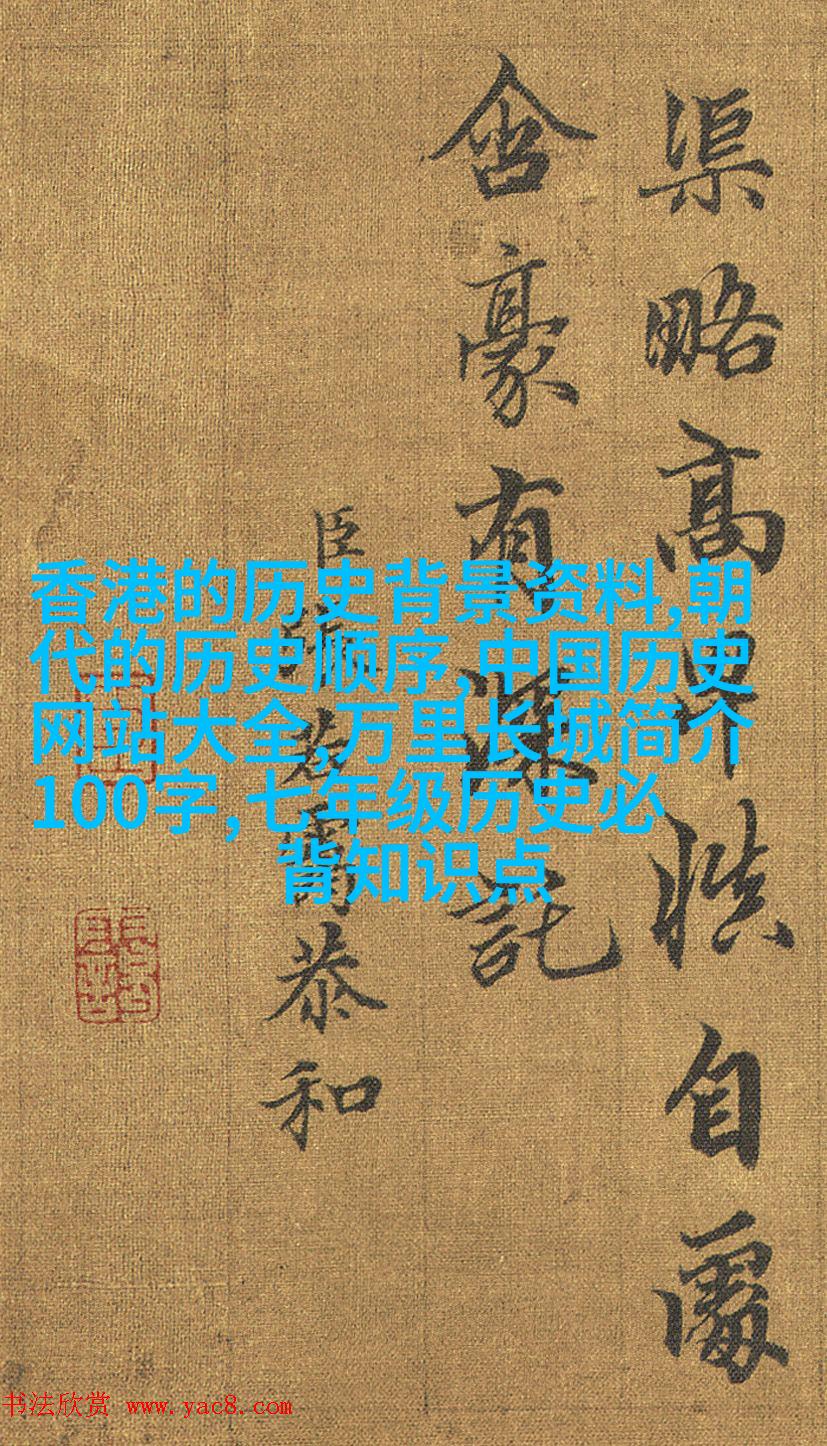 渠略高慎自處
含豪有深託
臣若恭和
香港的历史背景资料,朝
代的历史顺序,中国历史
网站大全,万里长城简介
100字,七年级历史必
背知识点
书法欣赏 www.yac8.com